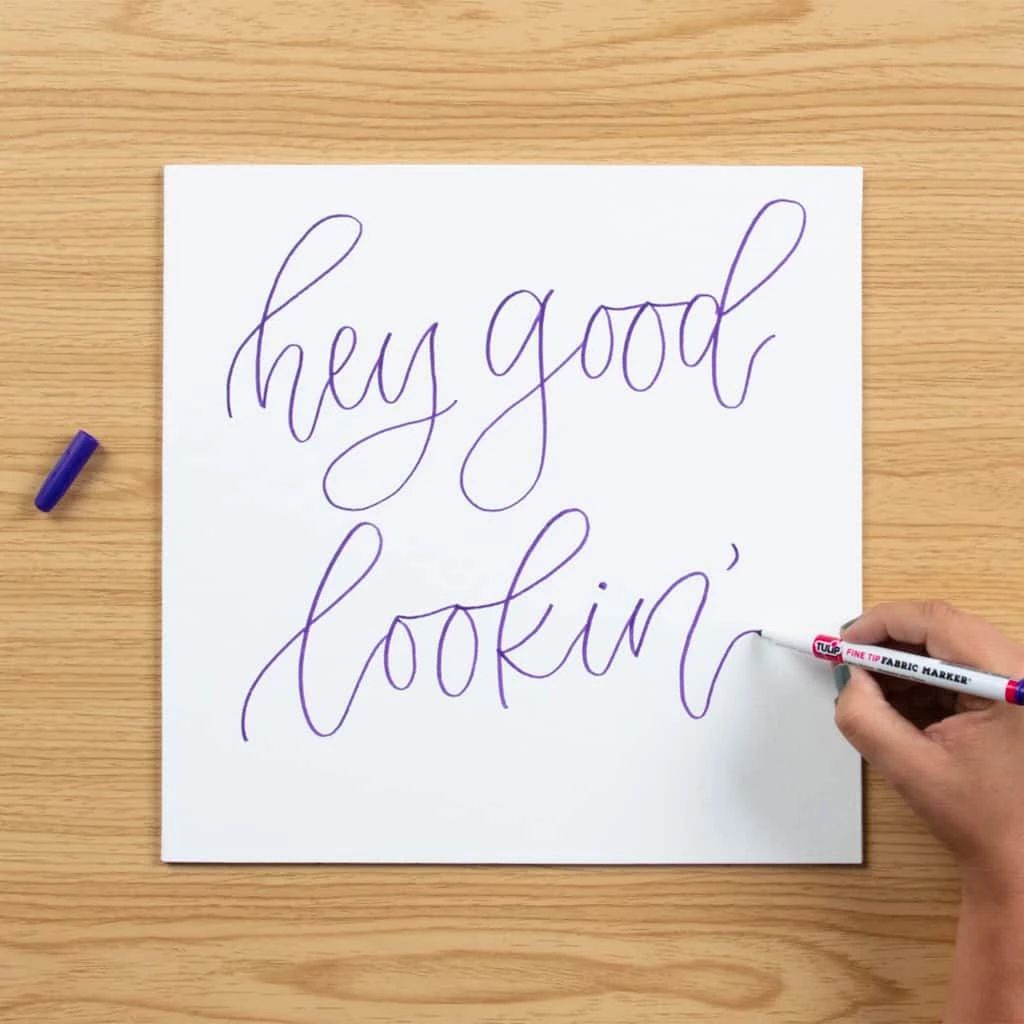 hey good
lookin'
TULIP FINE TIP FABRIC MARKER